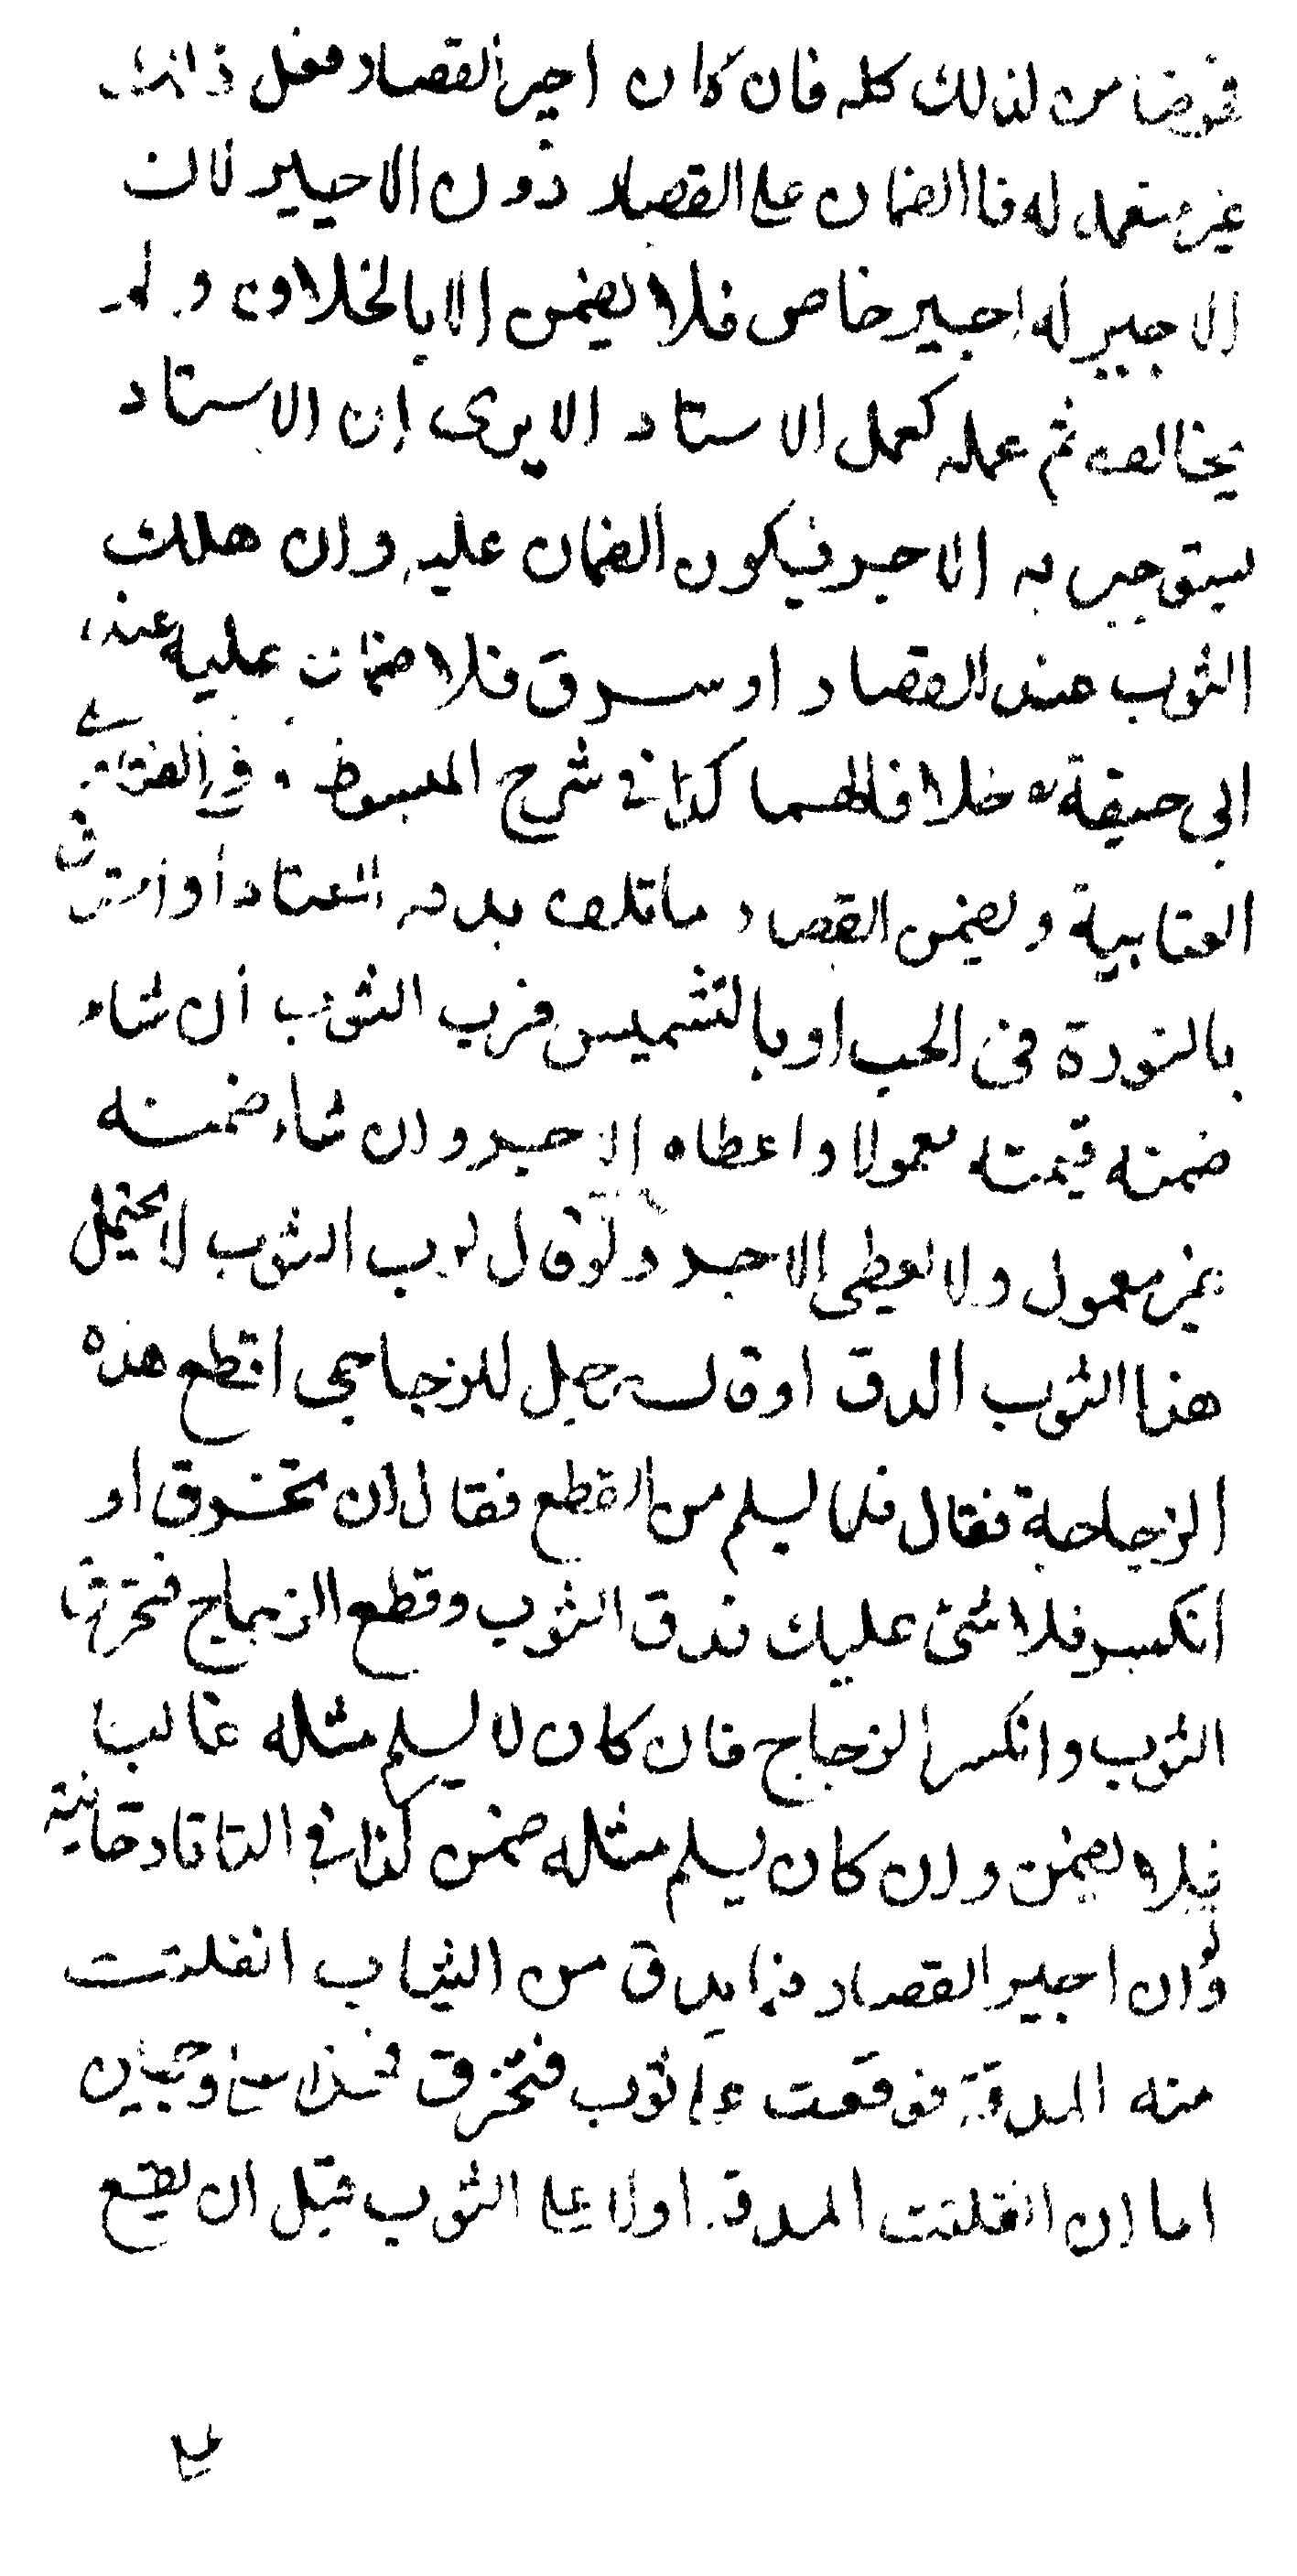 فهو ضامن لذلك كله فان كان اجير القصار فعل ذلك
غير متعمد له فالضمان على القصار دون الاجير لان
الاجير له اجير خاص فلا يضمن الا بالخلاف ولم
يخالف ثم عمله كعمل الاستاد الا يرى ان الاستاد
يستوجب به الاجر فيكون الضمان عليه وان هلك
الثوب عند القصار او سرق فلا ضمان عليه عند
ابى حنيفة خلافا لهما كذا فى شرح المبسوط وفى الفتاوى
العتابية ويضمن القصار ما تلف بدقه المعتاد او احترق
بالنورة فى الحب او بالتشميس فرب الثوب ان شاء
ضمنه قيمته معمولا واعطاه الاجر وان شاء ضمنه
غير معمول ولا يعطى الاجر ولو قال لرب الثوب لا يحتمل
هذا الثوب الدق او قال رجل للزجاجى اقطع هذه
الزجاجة فقال فلما يسلم من القطع فقال ان تخرق او
انكسر فلا شئ عليك فدق الثوب وقطع الزجاج فتخرق
الثوب وانكسر الزجاج فان كان لا يسلم مثله غالبا
فلا يضمن وان كان يسلم مثله ضمن كذا فى التاتارخانية
ولو ان اجير القصار فيما يدق من الثياب انفلتت
منه المدقة فوقعت على ثوب فتخرق فهذا على وجهين
اما ان انفلتت المدقة اولا على الثوب قبل ان يقع
على